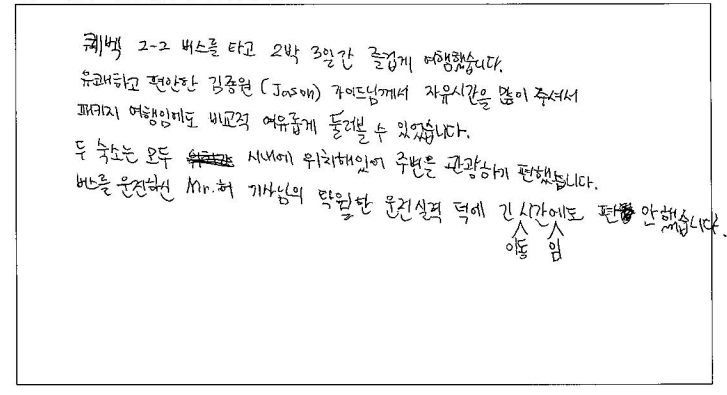 퀘벡 2-2 버스를 타고 2박 3일간 즐겁게 여행했습니다.
유쾌하고 편안한 김종원 (Jason) 가이드님께서 자유시간을 많이 주셔서
패키지 여행임에도 비교적 여유롭게 둘러볼 수 있었습니다.
두 숙소는 모두 시내에 위치해있어 주변을 관광하기 편했습니다.
버스를 운전하신 Mr.허 기사님의 탁월한 운전실력 덕에 긴 이동시간임에도 편안했습니다.